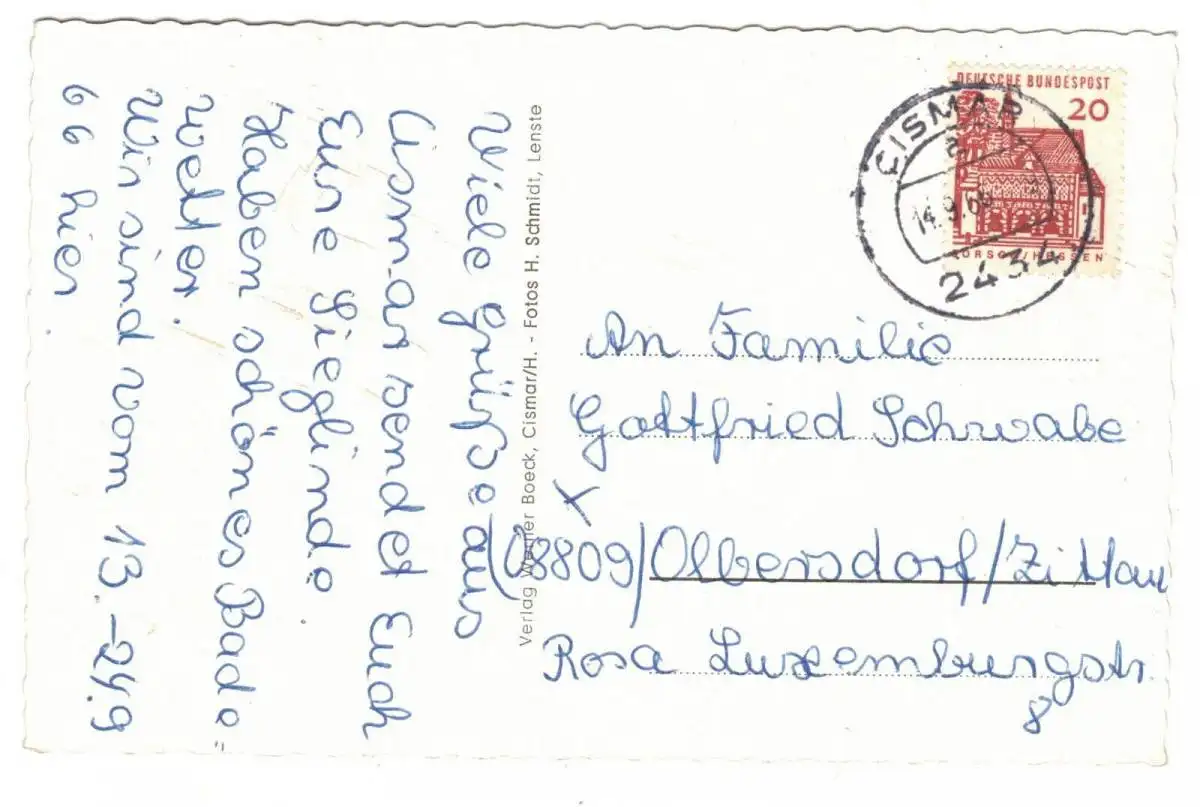 Viele Grüße aus
Cismar sendet Euch
Eure Sieglinde.
Haben schönes Bade=
wetter.
Wir sind vom 13.-24.9
66 hier.
Verlag Werner Boeck, Cismar/H. - Fotos H. Schmidt, Lenste
DEUTSCHE BUNDESPOST
20
LORSCH/HESSEN
CISMAR
a
14.9.66
2434
An Familie
Gottfried Schwabe
X
(8809/Olbersdorf/Zittau
Rosa Luxemburgstr.
8